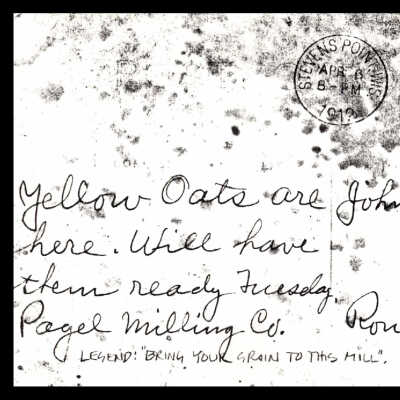 STEVENS POINT, WIS.
APR 8
8-PM
1912
Yellow Oats are John
here. Will have
them ready Tuesday.
Pagel Milling Co. Ron
LEGEND: "BRING YOUR GRAIN TO THIS MILL".